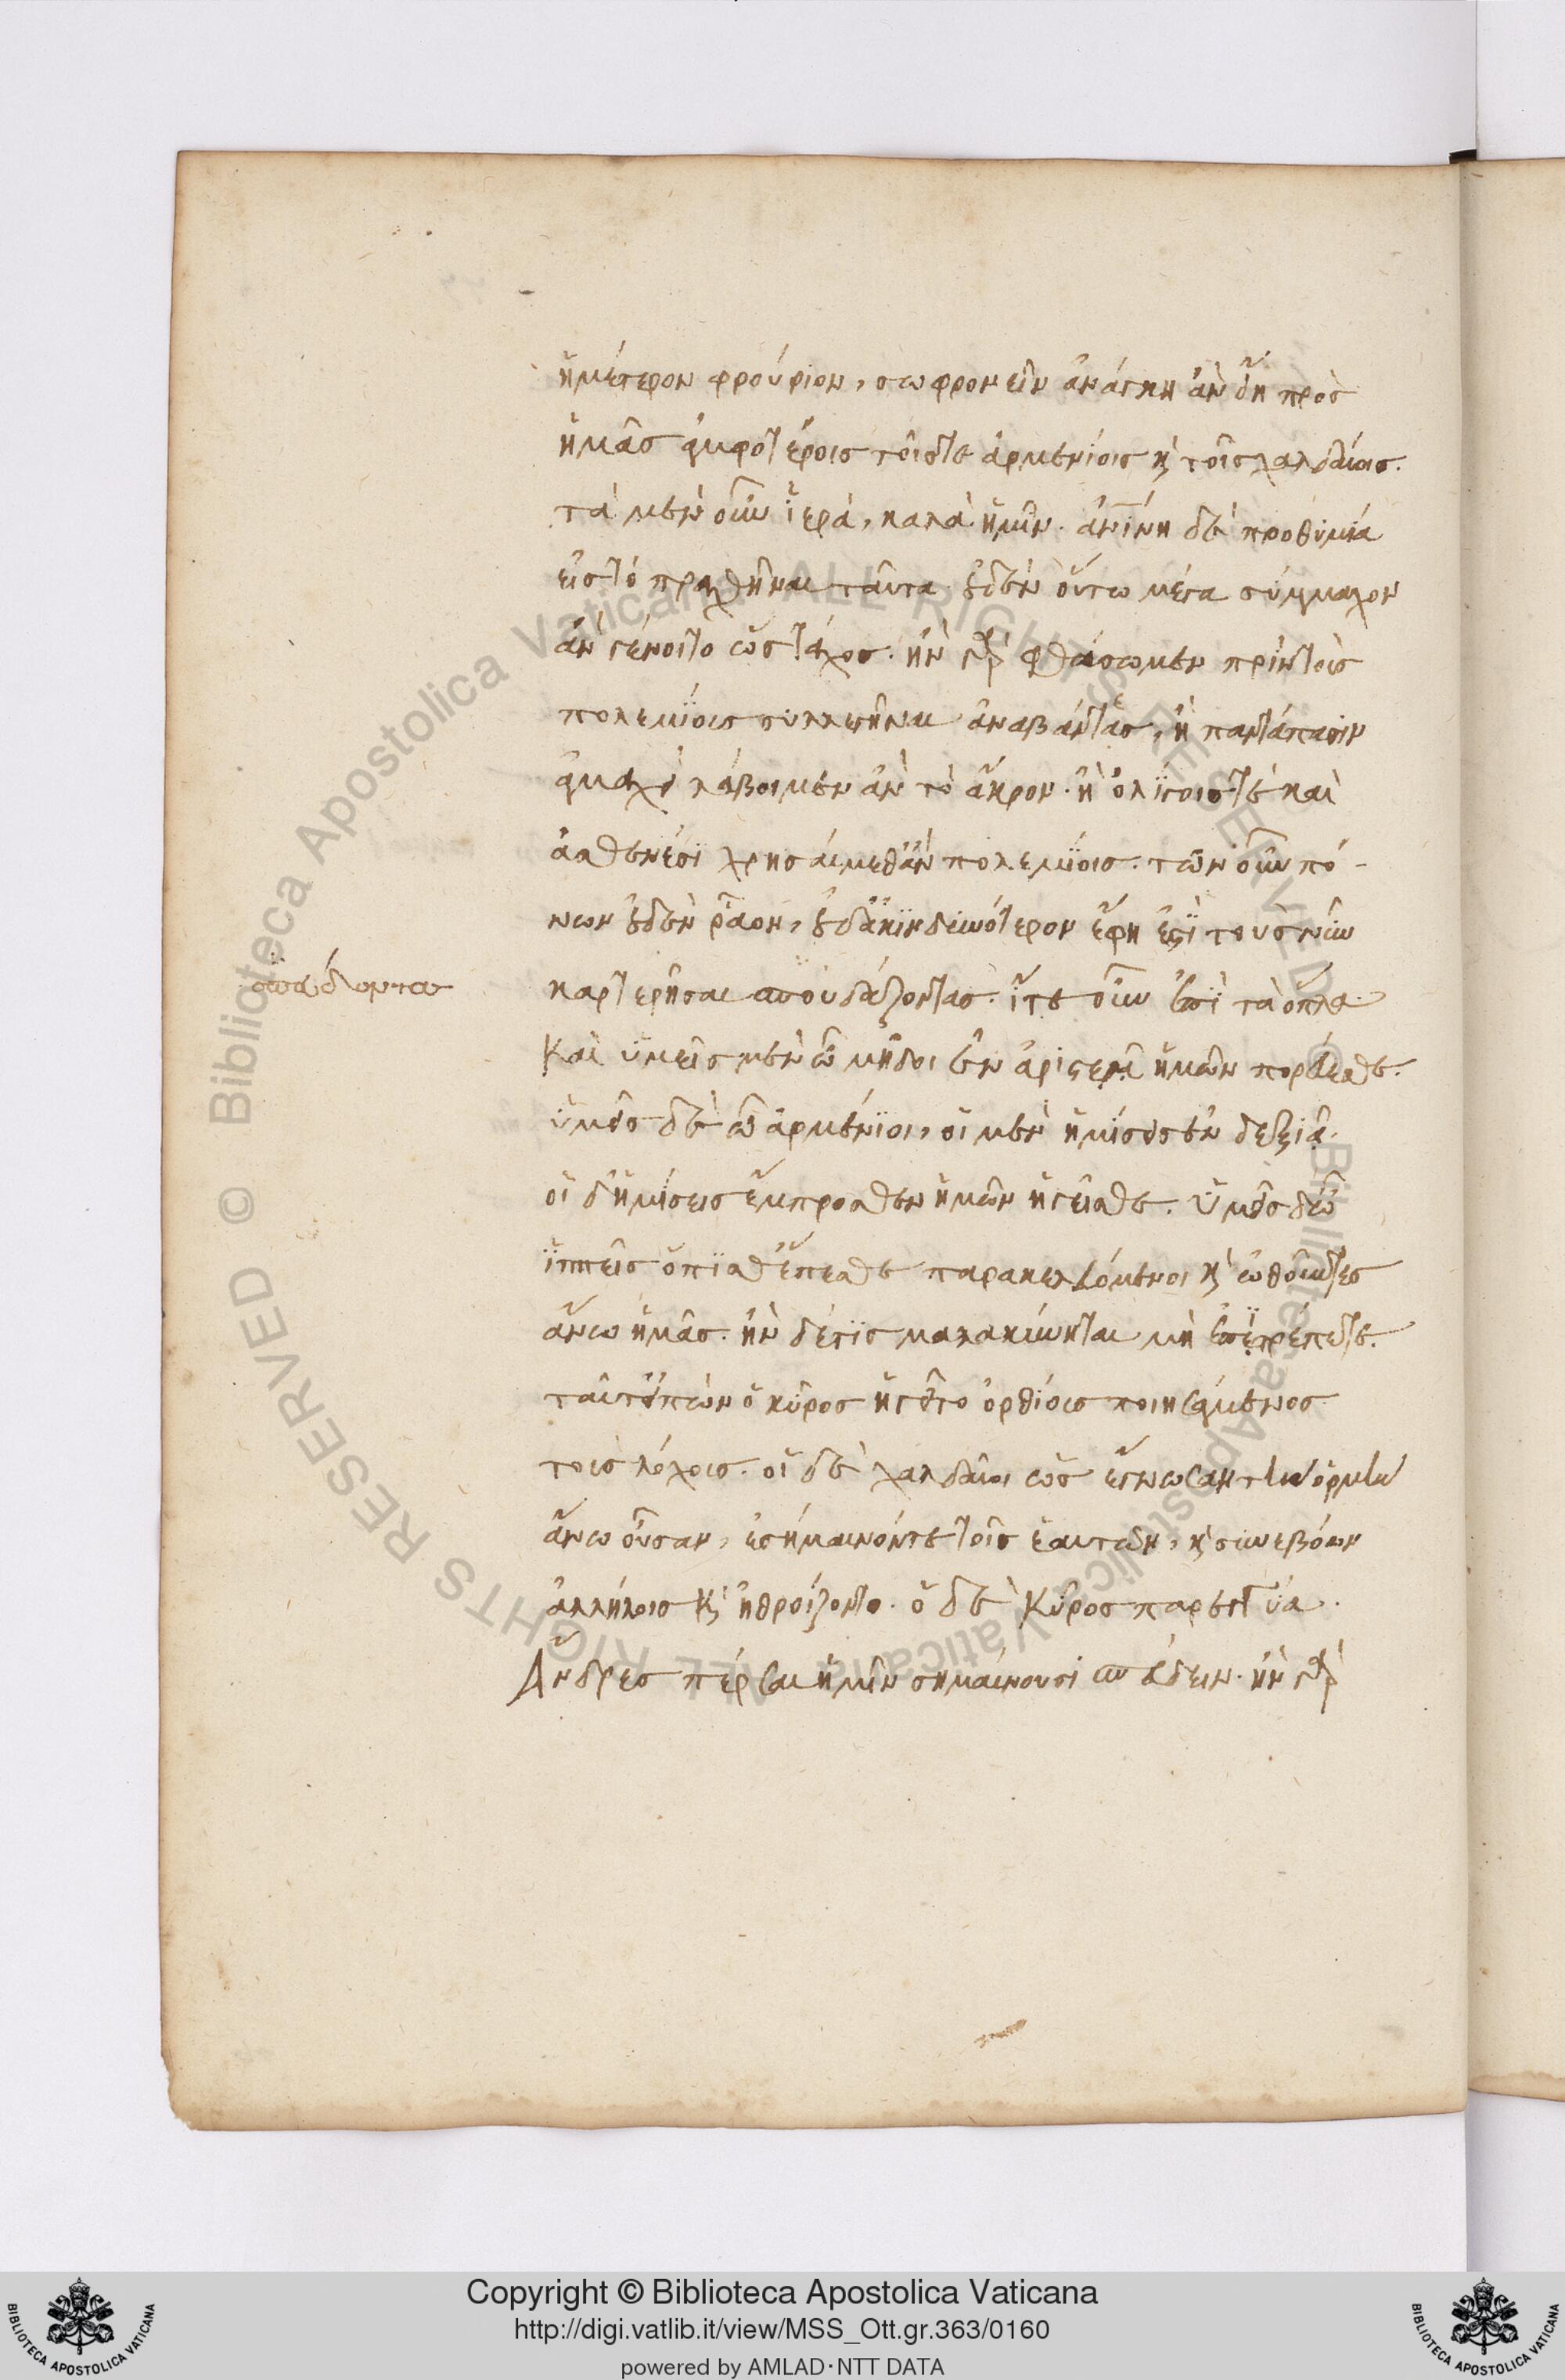 ἡμέτερον φρούριον, σωφρονεῖν ἀνάγκη ἂν εἴη πρὸς
ἡμᾶς ἀμφοτέροις τοῖς τε ἀρμενίοις κ τοῖς χαλδαίοις.
τὰ μὲν οὖν ἱερὰ, καλὰ ἡμῖν. δὲ προθυμία
εἰς τὸ πραχθῆναι ταῦτα οὐδὲν οὕτω μέγα σύμμαχον
ἂν γένοιτο ὡς τάχος. ἢν γὰρ φθάσωμεν πρὶν τοὺς
πολεμίους συλλεγῆναι ἀναβάντας, ἢ παντάπασιν
ἀμαχεὶ λάβοιμεν ἂν τὸ ἄκρον. ἢ ὀλίγοις τὲ καὶ
ἀσθενέσι χρησαίμεθ' ἂν πολεμίοις. τῶν οὖν πό-
νων οὐδὲν ῥᾷον, οὐδ' ἀκινδυνότερον ἔφη ἐστὶ τοῦ νῦν
σπεύδοντας
καρτερῆσαι σπουδάζοντας. ἴτε οὖν ἐπὶ τὰ ὅπλα.
Καὶ ὑμεῖς μὲν ὦ μῆδοι ἐν ἀριστερᾷ ἡμῶν πορεύεσθε.
ὑμεῖς δὲ ὦ ἀρμένιοι, οἱ μὲν ἡμίσεις ἐν δεξιᾷ.
οἱ δ' ἡμίσεις ἔμπροσθεν ἡμῶν ἡγεῖσθε. ὑμεῖς δ' ὦ
ἱππεῖς ὄπισθ' ἕπεσθε παρακελευόμενοι κ ὠθοῦντες
ἄνω ἡμᾶς. ἢν δέ τις μαλακύνηται μὴ ἐπιτρέπετε.
ταῦτ' εἰπὼν ὁ κῦρος ἡγεῖτο ὀρθίους ποιησάμενος
τοὺς λόχους. οἱ δὲ χαλδαῖοι ὡς ἔγνωσαν τὴν ὁρμὴν
ἄνω οὖσαν, ἐσήμαινόν τε τοῖς ἑαυτῶν, κ συνεβόων
ἀλλήλοις κ ἠθροίζοντο. ὁ δὲ Κῦρος παρηγγύα.
Ἄνδρες πέρσαι ἡμῖν σημαίνουσι σπεύδειν. ἢν γὰρ
Copyright © Biblioteca Apostolica Vaticana
http://digi.vatlib.it/view/MSS_Ott.gr.363/0160
powered by AMLAD·NTT DATA